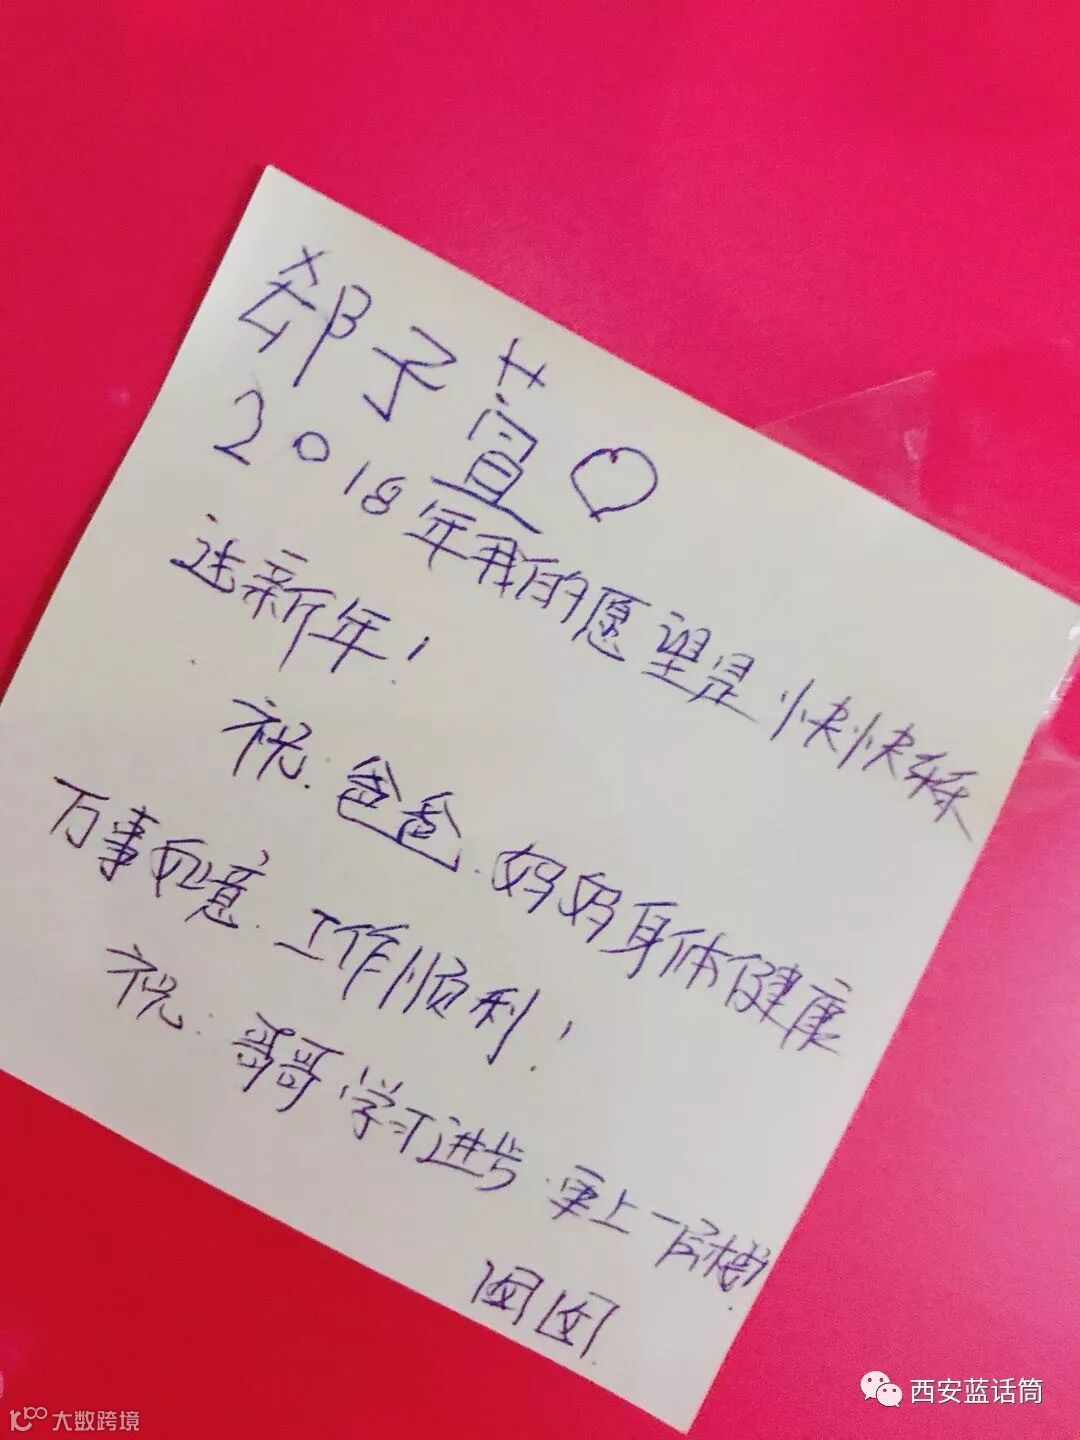 郄子萱
2018年我的愿望是快快乐乐
过新年！
祝：爸爸、妈妈身体健康
万事如意、工作顺利！
祝：哥哥学习进步、更上一层楼
囡囡
西安蓝话筒
大数跨境